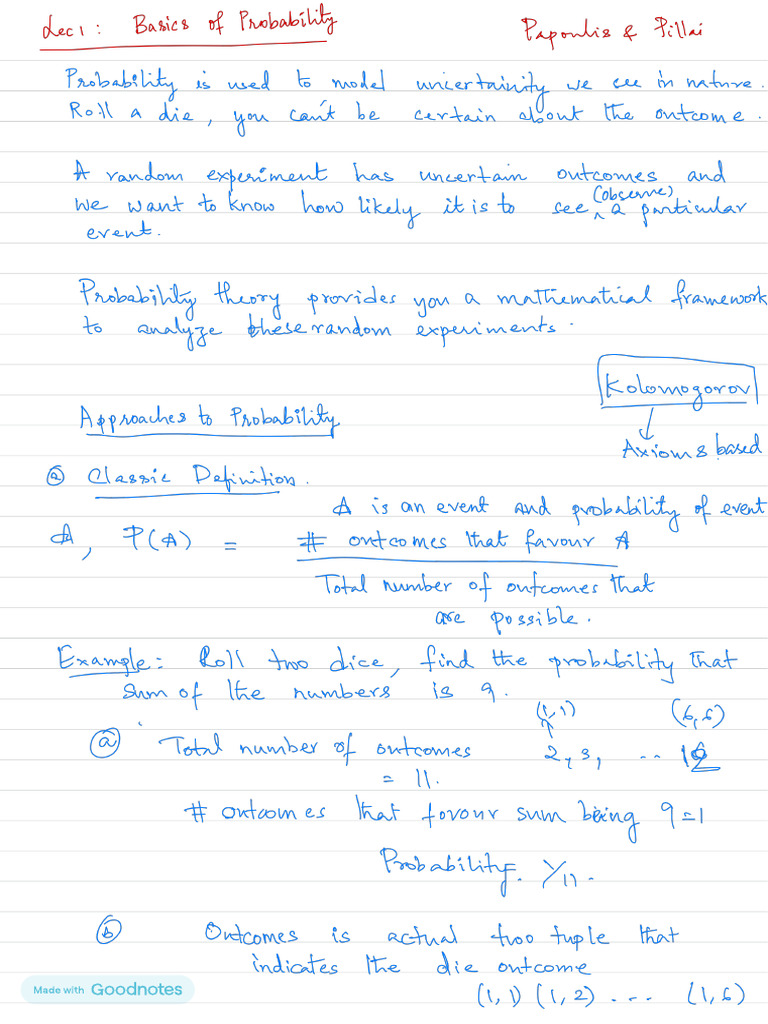 Lec 1: Basics of Probability
Papoulis & Pillai
Probability is used to model uncertainity we see in nature.
Roll a die, you can't be certain about the outcome.
A random experiment has uncertain outcomes and
(observe)
we want to know how likely it is to see ^ a particular
event.
Probability theory provides you a mathematical framework
to analyze these random experiments.
Kolomogorov
Approaches to Probability
Axioms based
ⓐ Classic Definition.
A is an event and probability of event
A, P(A) = # outcomes that favour A
Total number of outcomes that
are possible.
Example: Roll two dice, find the probability that
sum of the numbers is 9.
(1,1) (6,6)
ⓐ Total number of outcomes 2, 3, .. 12
= 11.
# outcomes that favour sum being 9 = 1
Probability. 1/11.
ⓑ Outcomes is actual two tuple that
indicates the die outcome
(1,1) (1,2) ... (1,6)
Made with Goodnotes